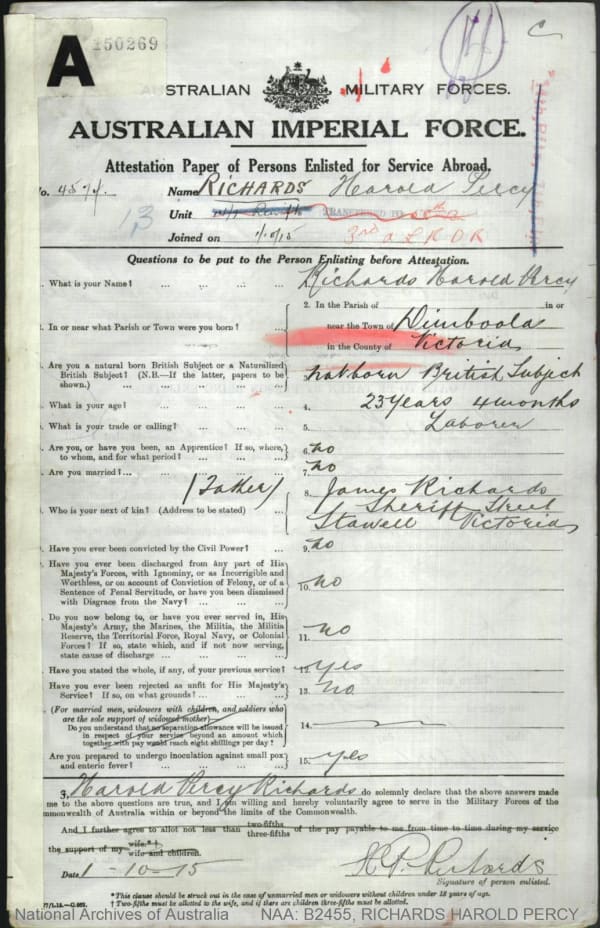 A
150269
C
AUSTRALIAN MILITARY FORCES.
AUSTRALIAN IMPERIAL FORCE.
Attestation Paper of Persons Enlisted for Service Abroad.
No. 4574. Name RICHARDS Harold Percy
13 Unit TRANSFERRED TO
Joined on 1/10/15 3rd A L R O R
Questions to be put to the Person Enlisting before Attestation.
1. What is your Name? ... ... ... ... Richards Harold Percy
2. In or near what Parish or Town were you born? ...
2. In the Parish of in or
near the Town of Dimboola
in the County of Victoria
Are you a natural born British Subject or a Naturalized
British Subject? (N.B.—If the latter, papers to be
shown.) ... ... ... ... ...
3. Nat born British Subject
What is your age? ... ... ... ... 4. 23 years 4 months
What is your trade or calling? ... ... ... 5. Laborer
Are you, or have you been, an Apprentice? If so, where,
to whom, and for what period? ... ... ...
6. No
Are you married? ... ... ... ... 7. No
Who is your next of kin? (Address to be stated) ...
(Father)
8. James Richards
Sheriff Street
Stawell Victoria
Have you ever been convicted by the Civil Power? ... 9. No
Have you ever been discharged from any part of His
Majesty's Forces, with Ignominy, or as Incorrigible and
Worthless, or on account of Conviction of Felony, or of a
Sentence of Penal Servitude, or have you been dismissed
with Disgrace from the Navy? ... ... ...
10. No
Do you now belong to, or have you ever served in, His
Majesty's Army, the Marines, the Militia, the Militia
Reserve, the Territorial Force, Royal Navy, or Colonial
Forces? If so, state which, and if not now serving,
state cause of discharge ... ... ... ...
11. No
Have you stated the whole, if any, of your previous service? 12. Yes
Have you ever been rejected as unfit for His Majesty's
Service? If so, on what grounds? ... ... ...
13. No
(For married men, widowers with children, and soldiers who
are the sole support of widowed mother)—
Do you understand that no separation allowance will be issued
in respect of your service beyond an amount which
together with pay would reach eight shillings per day?
14.
Are you prepared to undergo inoculation against small pox
and enteric fever? ... ... ... ...
15. Yes
I, Harold Percy Richards do solemnly declare that the above answers made
me to the above questions are true, and I am willing and hereby voluntarily agree to serve in the Military Forces of the
Commonwealth of Australia within or beyond the limits of the Commonwealth.
And I further agree to allot not less than two-fifths three-fifths of the pay payable to me from time to time during my service
the support of my wife.*† wife and children.
Date 1-10-15 H P Richards
Signature of person enlisted.
*This clause should be struck out in the case of unmarried men or widowers without children under 18 years of age.
† Two-fifths must be allotted to the wife, and if there are children three-fifths must be allotted.
National Archives of Australia NAA: B2455, RICHARDS HAROLD PERCY